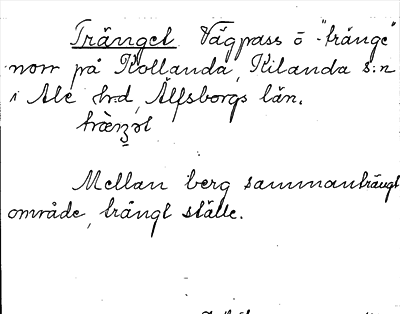 Trängel Vägpass o "tränge"
norr på Kollanda, Kilanda s:n
i Ale h:d, Älfsborgs län.
Mellan berg sammanträngt
område, trängt ställe.